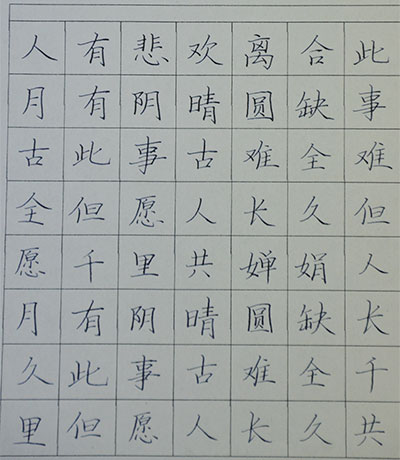 人有悲欢离合此
月有阴晴圆缺事
古此事古难全难
全但愿人长久但
愿千里共婵娟人
月有阴晴圆缺长
久此事古难全千
里但愿人长久共